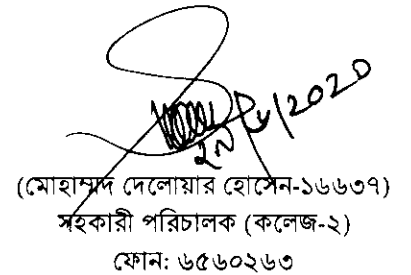 (মোহাম্মদ দেলোয়ার হোসেন-১৬৬৩৭)
সহকারী পরিচালক (কলেজ-২)
ফোন: ৬৫৬০২৬৩